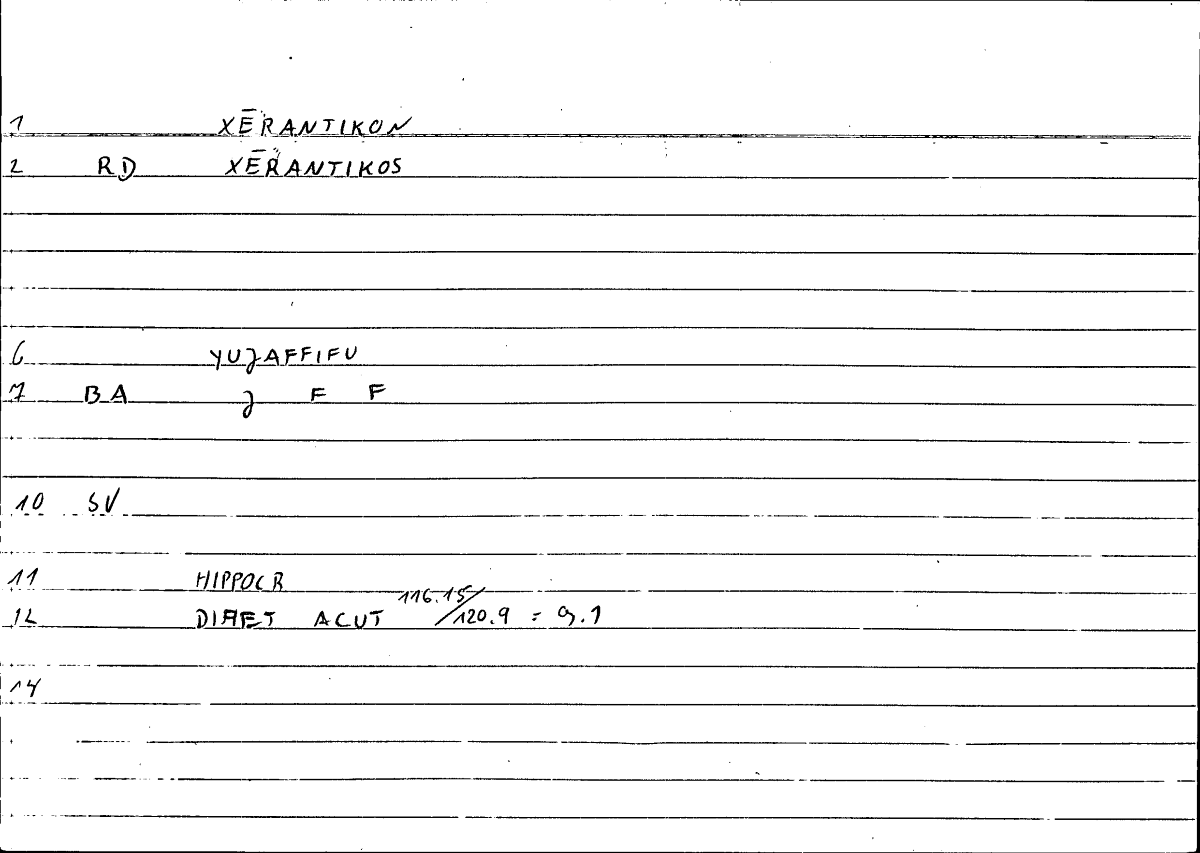 1 XĒRANTIKON
2 RD XĒRANTIKOS
6 YUJAFFIFU
7 BA J F F
10 SV
11 HIPPOCR
116.15/
12 DIAET ACUT 120.9 = 9.1
14